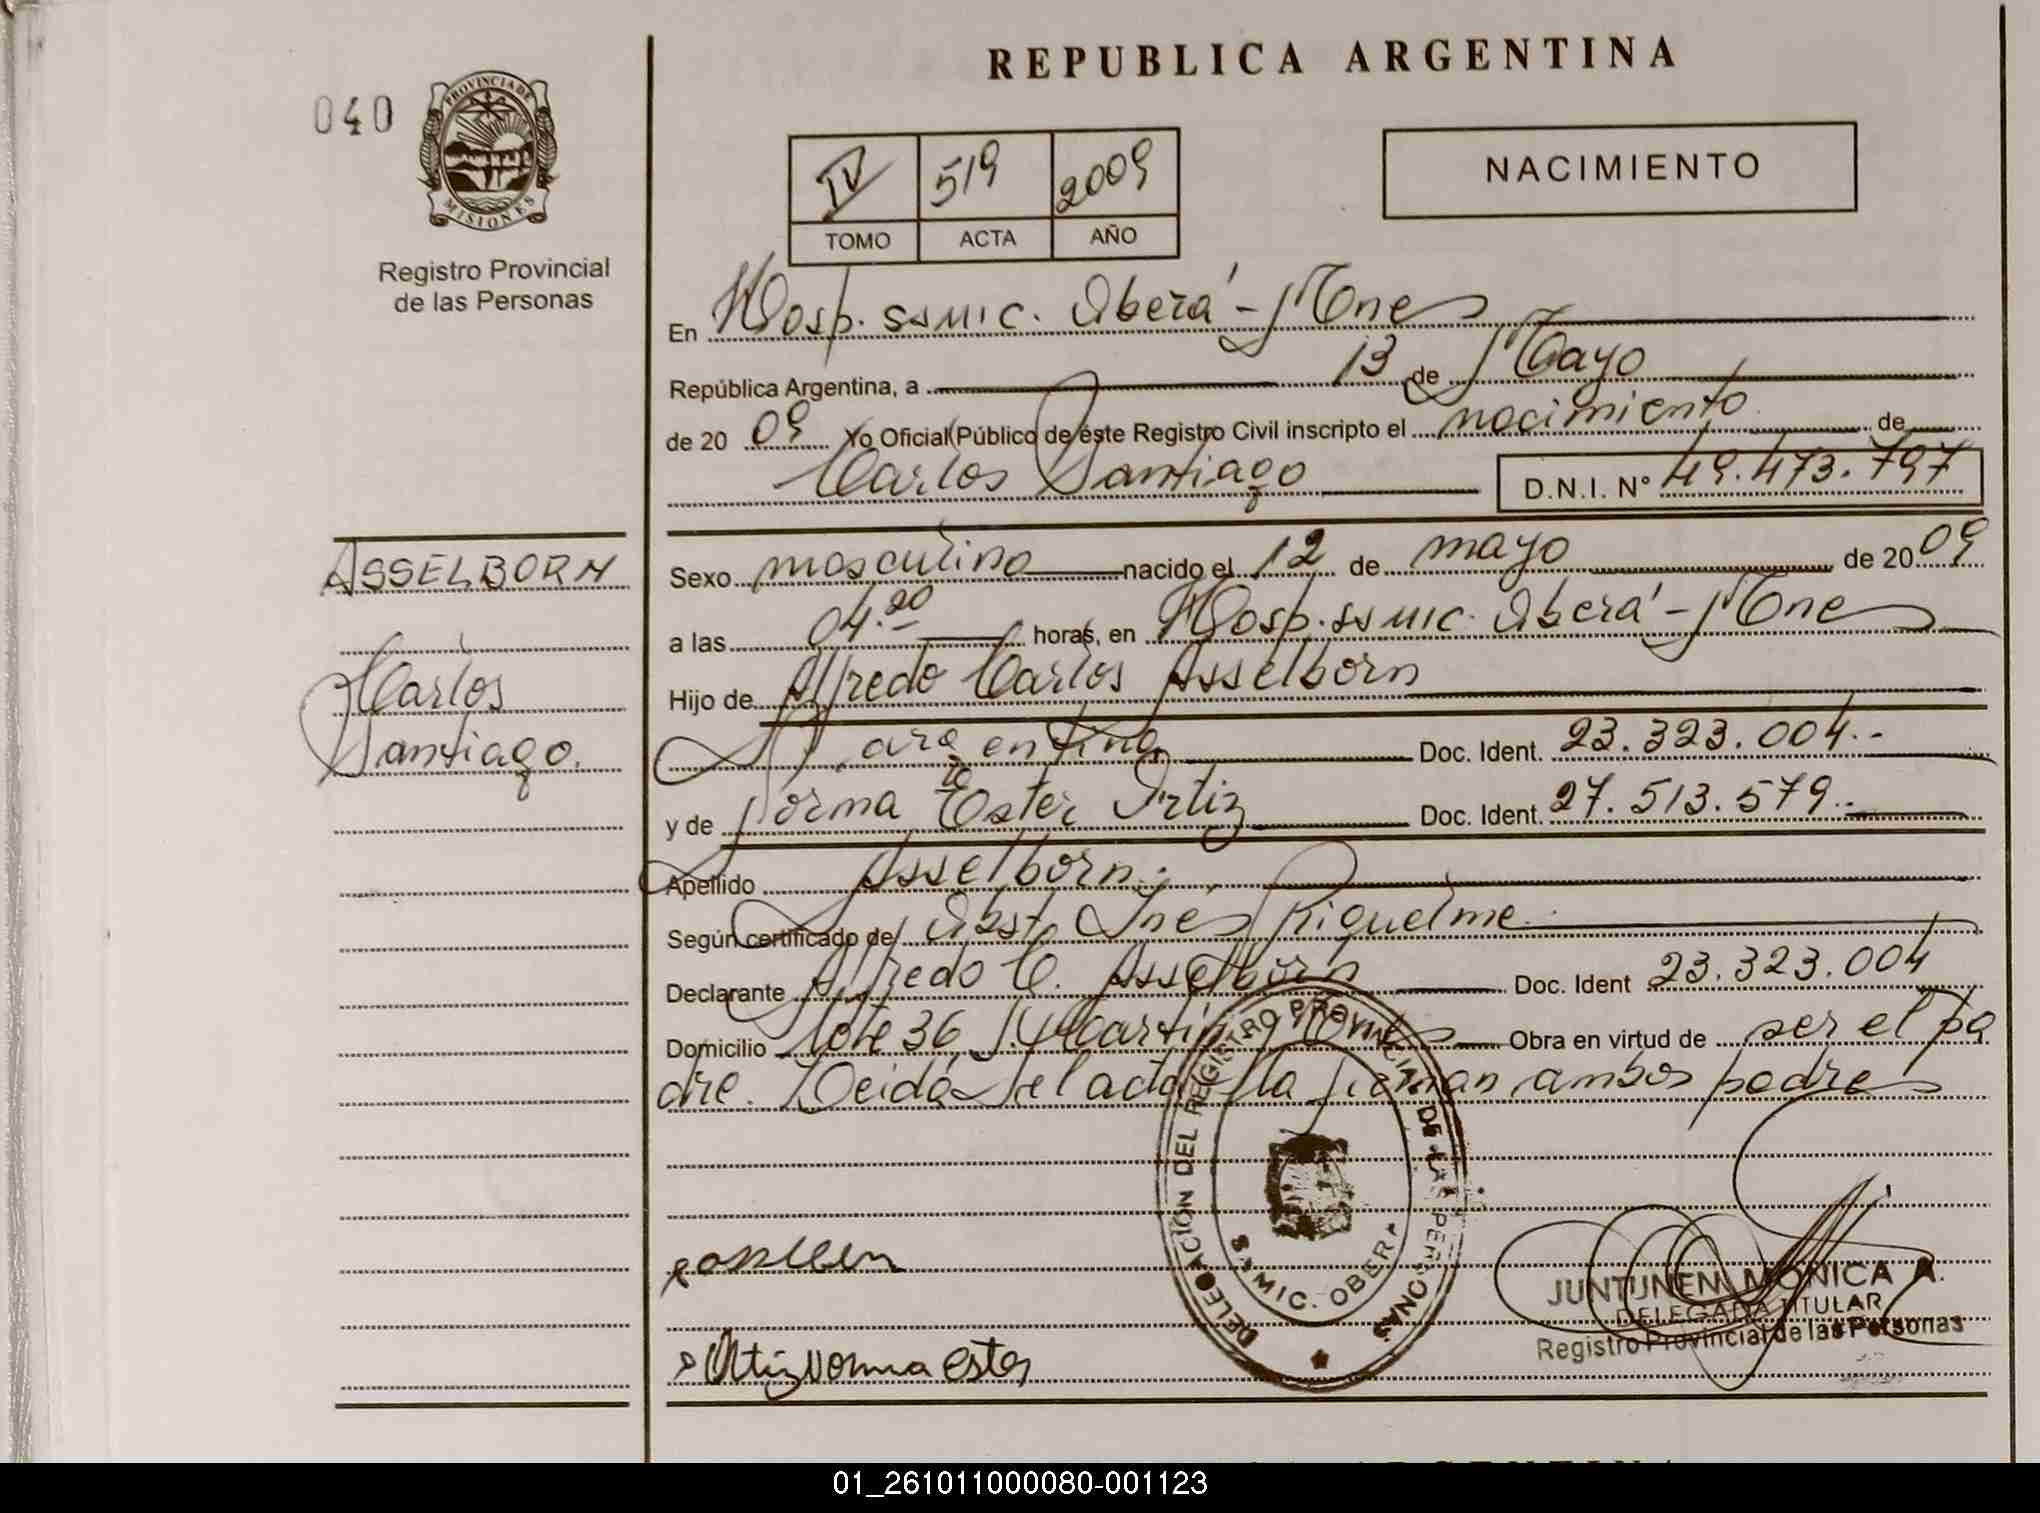 REPUBLICA ARGENTINA
040
PROVINCIA DE
MISIONES
Registro Provincial
de las Personas
IV 519 2009
TOMO ACTA AÑO
NACIMIENTO
En Hosp. SSMIC. Oberá - Mnes
República Argentina, a 13 de Mayo
de 20 09 Yo Oficial Público de éste Registro Civil inscripto el nacimiento de
Carlos Santiago D.N.I. N° 49.473.797
ASSELBORN
Carlos
Santiago.
Sexo masculino nacido el 12 de mayo de 20 09
a las 04.20 horas, en Hosp. SSMIC. Oberá - Mnes
Hijo de Alfredo Carlos Asselborn
argentino Doc. Ident. 23.323.004.-
y de Norma Ester Ortiz Doc. Ident. 27.513.579.-
Apellido Asselborn.
Según certificado de Obst. Inés Riquelme.
Declarante Alfredo C. Asselborn Doc. Ident 23.323.004
Domicilio Lote 36 Martín Mnes Obra en virtud de ser el pa
dre. Leida el acta la firman ambos padres
DELEGACIÓN DEL REGISTRO PROVINCIAL DE LAS PERSONAS
SAMIC. OBERA
Ortiz Norma ester
JUNTUNEN, MONICA A.
DELEGADA TITULAR
Registro Provincial de las Personas
01_261011000080-001123